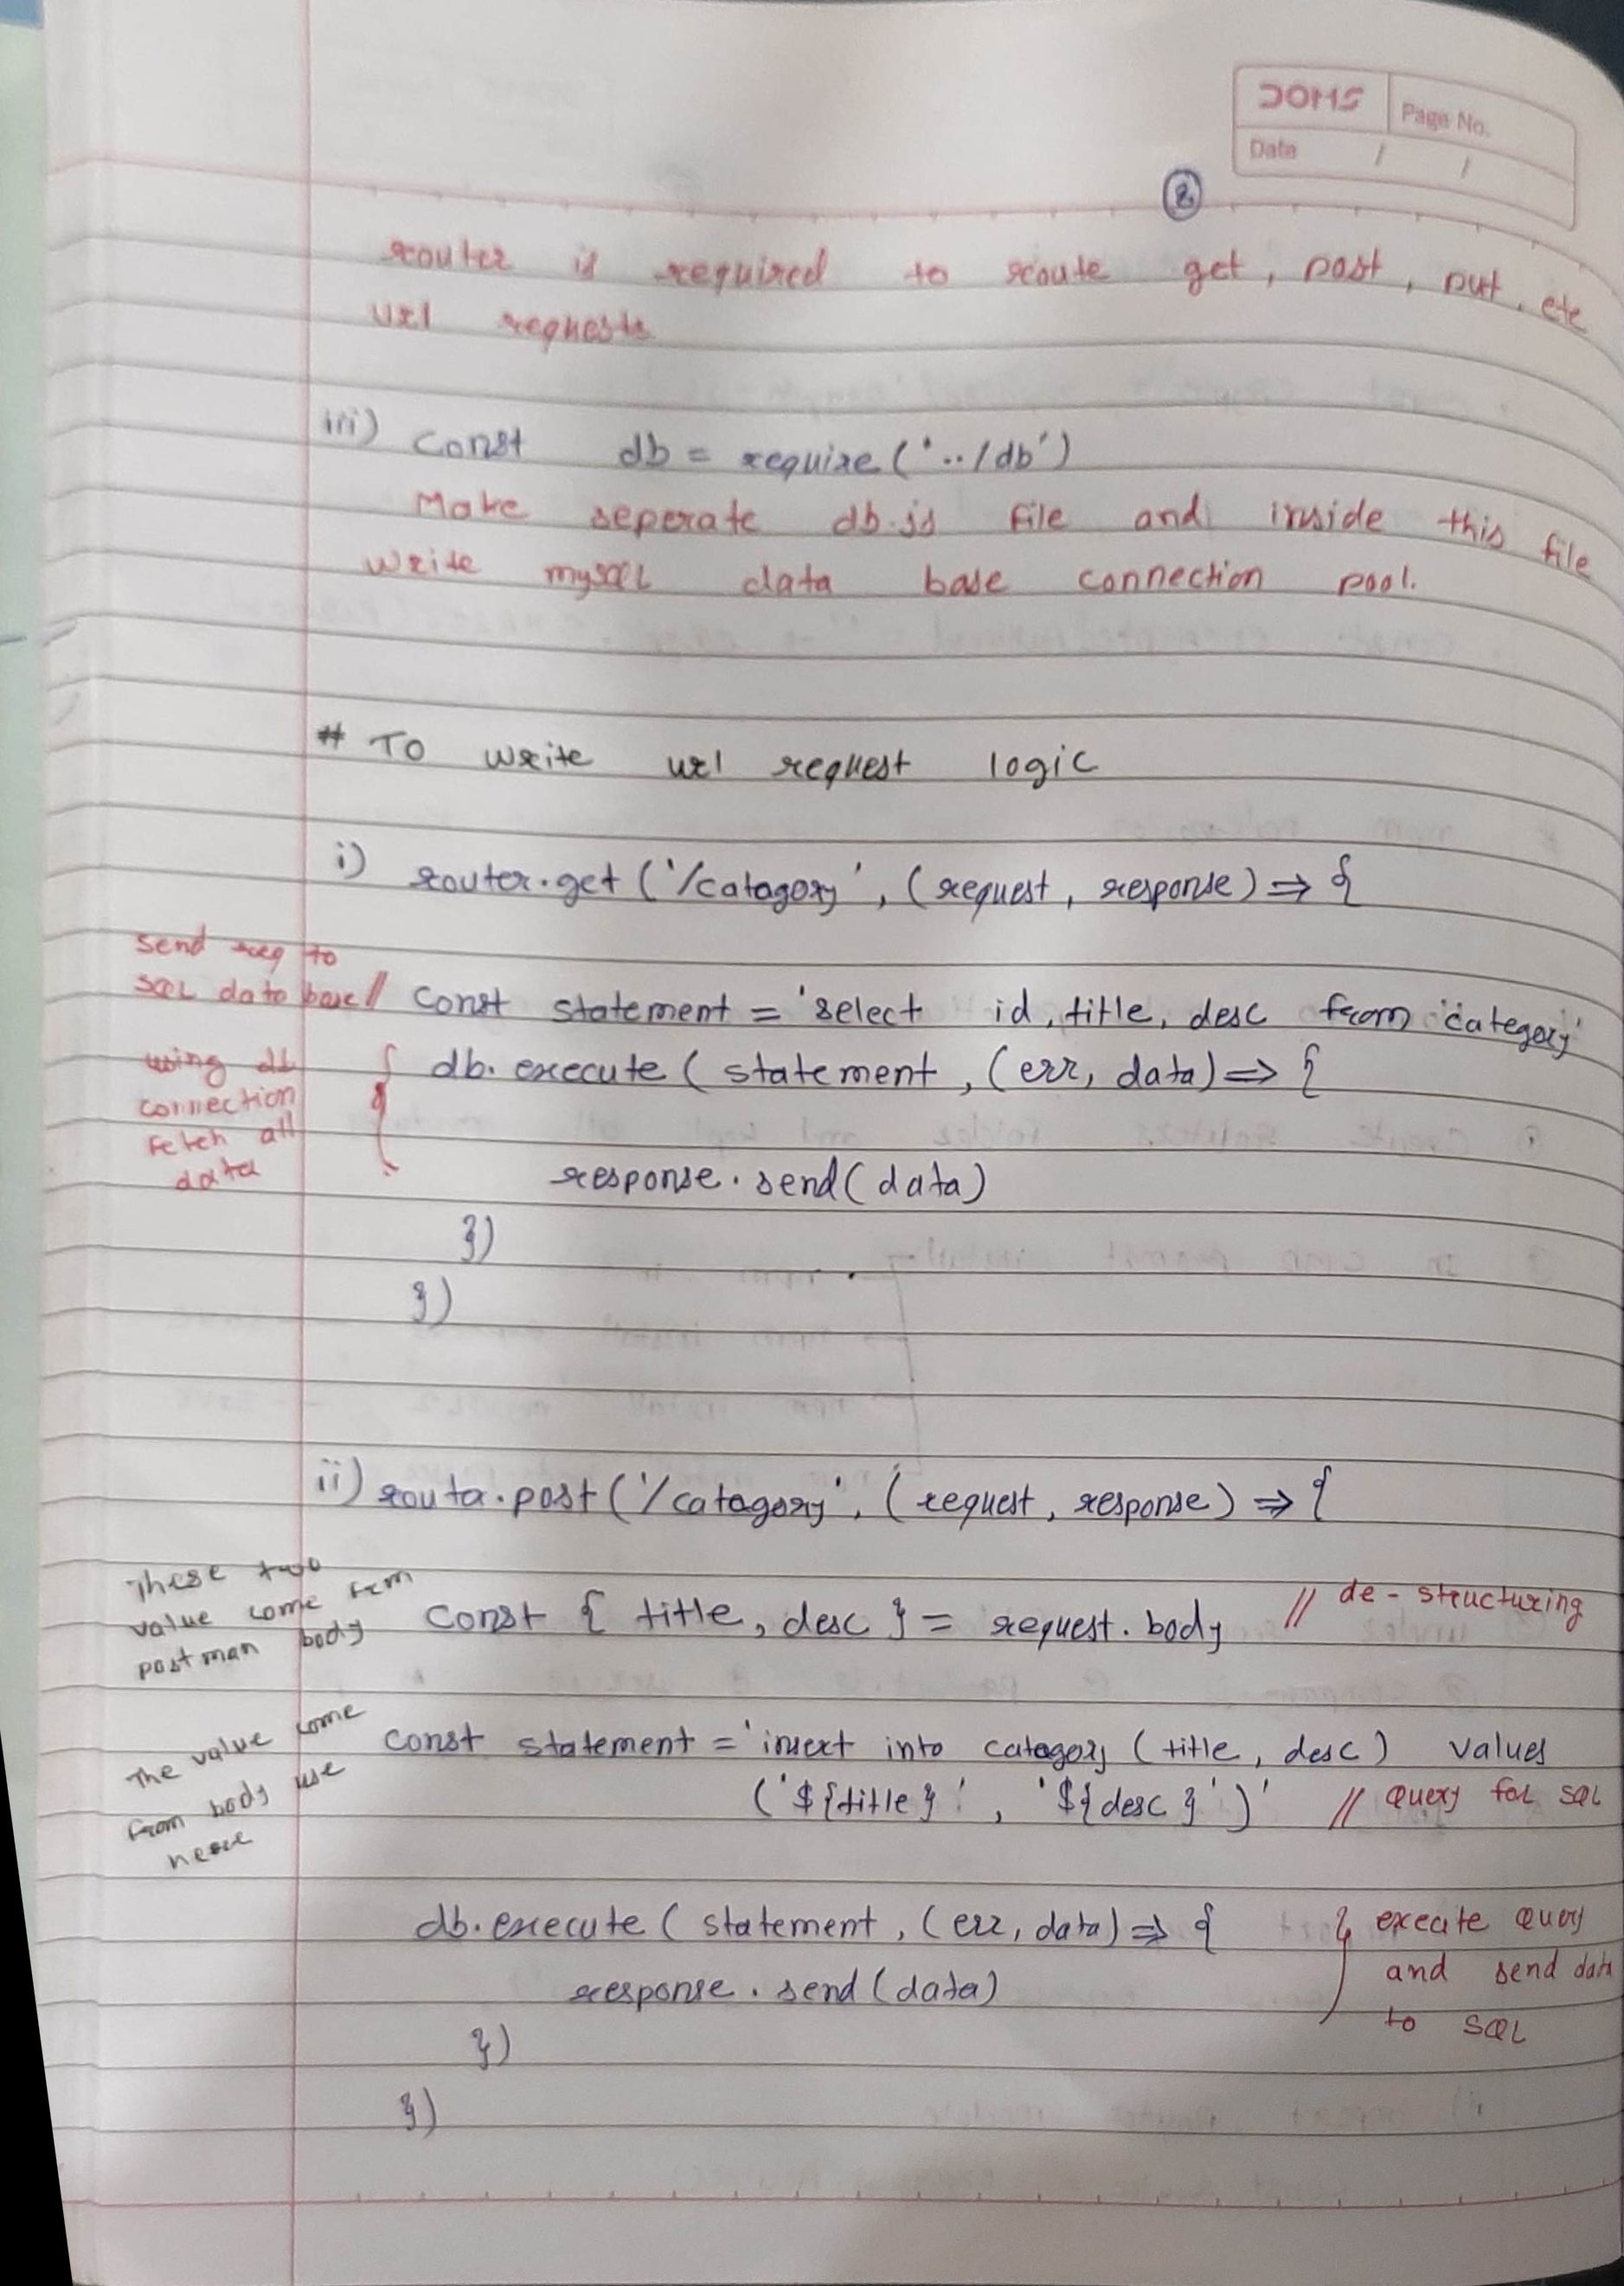 DOMS
Page No.
Date / /
2
router is required to route get, post, put, etc
url requests
iii) const db = require('../db')
Make seperate db.js file and inside this file
write mysql data base connection pool.
# To write url request logic
i) router.get('/catagory', (request, response) => {
send req to
SQL data base // const statement = 'select id, title, desc from category'
using db
connection
fetch all
data
{ db.execute(statement, (err, data) => {
response.send(data)
})
})
ii) router.post('/catagory', (request, response) => {
These two
value come from
postman body
const { title, desc } = request.body // de-structuring
The value come
from body use
const statement = 'insert into category (title, desc) values
('${title}', '${desc}')' // Query for SQL
db.execute(statement, (err, data) => {
response.send(data)
})
})
} execute query
and send data
to SQL